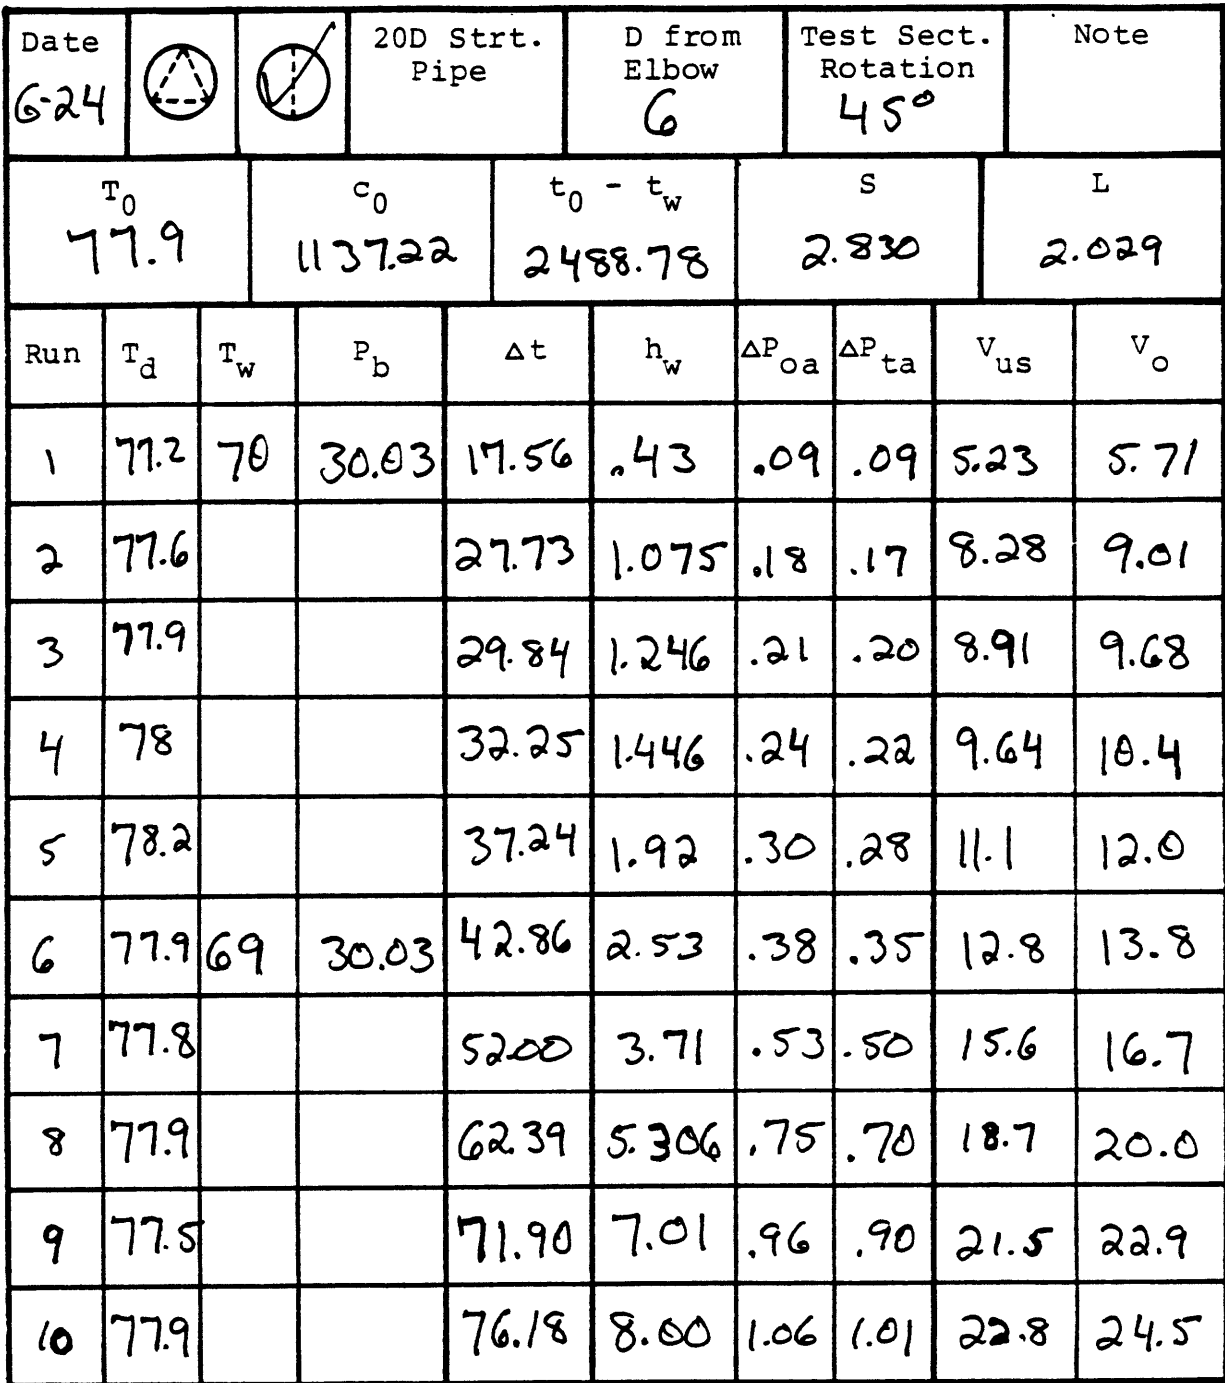 Date 20D Strt. D from Test Sect. Note
Pipe Elbow Rotation
6-24 6 45°
T0 c0 t0 - tw S L
77.9 1137.22 2488.78 2.830 2.029
Run Td Tw Pb Δt hw ΔPoa ΔPta Vus Vo
1 77.2 70 30.03 17.56 .43 .09 .09 5.23 5.71
2 77.6 27.73 1.075 .18 .17 8.28 9.01
3 77.9 29.84 1.246 .21 .20 8.91 9.68
4 78 32.25 1.446 .24 .22 9.64 10.4
5 78.2 37.24 1.92 .30 .28 11.1 12.0
6 77.9 69 30.03 42.86 2.53 .38 .35 12.8 13.8
7 77.8 52.00 3.71 .53 .50 15.6 16.7
8 77.9 62.39 5.306 .75 .70 18.7 20.0
9 77.5 71.90 7.01 .96 .90 21.5 22.9
10 77.9 76.18 8.00 1.06 1.01 22.8 24.5